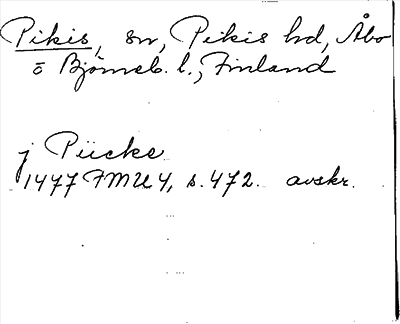 Pikis, sn, Pikis hd, Åbo
o Björneb. l., Finland
j Pücke
1477 FMU 4, s. 472. avskr.